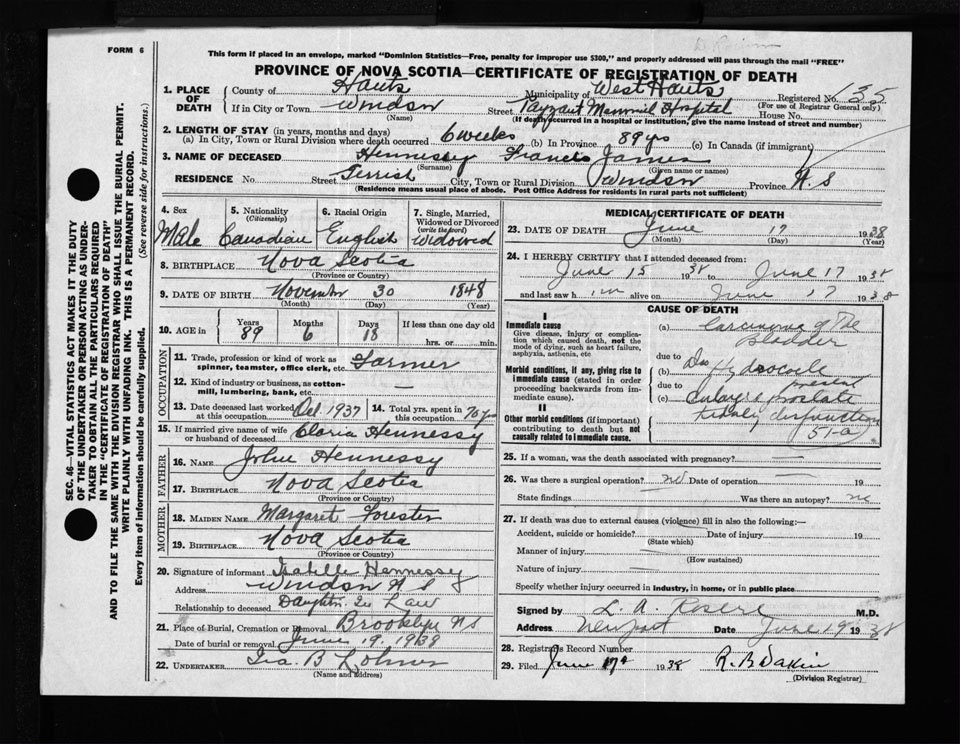 FORM 6
This form if placed in an envelope, marked "Dominion Statistics—Free, penalty for improper use $300," and properly addressed will pass through the mail "FREE"
PROVINCE OF NOVA SCOTIA—CERTIFICATE OF REGISTRATION OF DEATH
1. PLACE OF DEATH
County of Hants Municipality of West Hants Registered No. 135
(For use of Registrar General only)
If in City or Town Windsor Street Payzant Memorial Hospital House No.
(Name) (If death occurred in a hospital or institution, give the name instead of street and number)
2. LENGTH OF STAY (in years, months and days)
(a) In City, Town or Rural Division where death occurred 6 weeks (b) In Province 89 yrs (c) In Canada (if immigrant)
3. NAME OF DECEASED Hennessy Francis James
(Surname) (Given name or names)
RESIDENCE No. Street City, Town or Rural Division Windsor Province N.S
(Residence means usual place of abode. Post Office Address for residents in rural parts not sufficient)
SEC. 46—VITAL STATISTICS ACT MAKES IT THE DUTY
OF THE UNDERTAKER OR PERSON ACTING AS UNDER-
TAKER TO OBTAIN ALL THE PARTICULARS REQUIRED
IN THE "CERTIFICATE OF REGISTRATION OF DEATH"
AND TO FILE THE SAME WITH THE DIVISION REGISTRAR WHO SHALL ISSUE THE BURIAL PERMIT.
WRITE PLAINLY WITH UNFADING INK. THIS IS A PERMANENT RECORD.
Every item of information should be carefully supplied. (See reverse side for instructions.)
4. Sex
Male
5. Nationality
(Citizenship)
Canadian
6. Racial Origin
English
7. Single, Married,
Widowed or Divorced
(write the word)
Widowed
8. BIRTHPLACE Nova Scotia
(Province or Country)
9. DATE OF BIRTH November 30 1848
(Month) (Day) (Year)
10. AGE in Years Months Days If less than one day old
89 6 18 hrs. or min.
OCCUPATION
11. Trade, profession or kind of work as
spinner, teamster, office clerk, etc. Farmer
12. Kind of industry or business, as cotton-
mill, lumbering, bank, etc. —
13. Date deceased last worked at this occupation Oct 1937 14. Total yrs. spent in this occupation 70 yrs
15. If married give name of wife
or husband of deceased Cloria Hennessy
FATHER
16. NAME John Hennessy
17. BIRTHPLACE Nova Scotia
(Province or Country)
MOTHER
18. MAIDEN NAME Margaret Forester
19. BIRTHPLACE Nova Scotia
(Province or Country)
20. Signature of informant Isabelle Hennessey
Address Windsor N S
Relationship to deceased Daughter In Law
21. Place of Burial, Cremation or Removal Brooklyn NS
Date of burial or removal June 19. 1938
22. UNDERTAKER Ira. B
(Name and address)
MEDICAL CERTIFICATE OF DEATH
23. DATE OF DEATH June 17 1938
(Month) (Day) (Year)
24. I HEREBY CERTIFY that I attended deceased from:
June 15 1938 to June 17 1938
and last saw h im alive on June 17 1938
CAUSE OF DEATH
I
Immediate cause
Give disease, injury or complica-
tion which caused death, not the
mode of dying, such as heart failure,
asphyxia, asthenia, etc
(a) Carcinoma of the
Bladder
due to
Morbid conditions, if any, giving rise to
immediate cause (stated in order
proceeding backwards from im-
mediate cause).
(b) Hydrocele
due to present
(c) Enlarged prostate
II
Other morbid conditions (if important)
contributing to death but not
causally related to immediate cause.
kidney dysfunction
51-a
25. If a woman, was the death associated with pregnancy? —
26. Was there a surgical operation? no Date of operation — 19
State findings Was there an autopsy? no
27. If death was due to external causes (violence) fill in also the following:—
Accident, suicide or homicide? Date of injury 19
(State which)
Manner of injury
(How sustained)
Nature of injury
Specify whether injury occurred in industry, in home, or in public place
Signed by L. A. M.D.
Address Newport Date June 19 1938
28. Registrar's Record Number
29. Filed June 17th 1938 R. B Dakin
(Division Registrar)